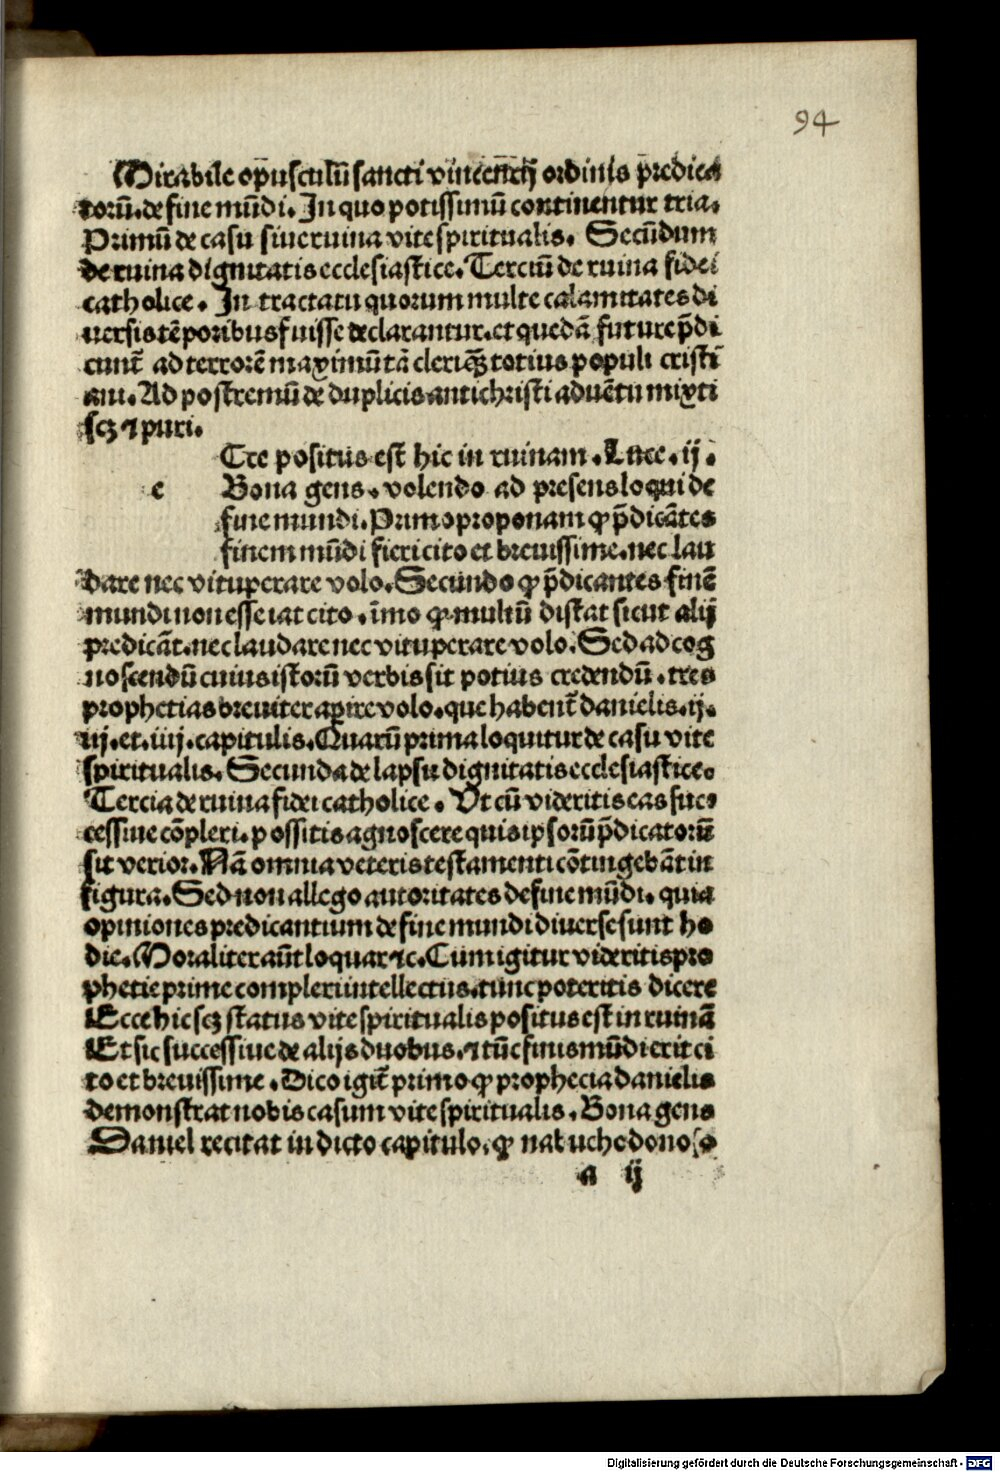 94
Mirabile opusculū sancti vincencij ordinis predica
torū. de fine mūdi. In quo potissimū continentur tria.
Primū de casu siue ruina vite spiritualis. Secūdum
de ruina dignitatis ecclesiastice. Terciū de ruina fidei
catholice. In tractatu quorum multe calamitates di
uersis tēporibus fuisse declarantur. et quedā future p̄di
cunt̄ ad terrorē maximū tā cleri qꝫ totius populi cristi
ani. Ad postremū de duplicis antichristi aduētu mixti
scꝫ ⁊ puri.
Cce positus est hic in ruinam. Luce. ij.
e Bona gens. volendo ad presens loqui de
fine mundi. Primo proponam ꝙ p̄dicātes
finem mūdi fieri cito et breuissime. nec lau
dare nec vituperare volo. Secundo ꝙ p̄dicantes finē
mundi non esse iat cito. īmo ꝙ multū distat sicut alij
predicāt. nec laudare nec vituperare volo. Sed ad cog
noscendū cuius istorū verbis sit potius credendū. tres
prophetias breuiter apire volo. que habent̄ danielis. ij.
iij. et. iiij. capitulis. Quarū prima loquitur de casu vite
spiritualis. Secunda de lapsu dignitatis ecclesiastice.
Tercia de ruina fidei catholice. Vt cū videritis eas suc
cessiue cōpleri. possitis agnoscere quis ipsorū p̄dicatorū
sit verior. Nā omnia veteris testamenti cōtingebāt in
figura. Sed non allego autoritates de fine mūdi. quia
opiniones predicantium de fine mundi diuerse sunt ho
die. Moraliter aūt loquar ⁊c. Cum igitur videritis pro
phetie prime compleri intellectus. tunc poteritis dicere
Ecce hic scꝫ status vite spiritualis positus est in ruinā
Et sic successiue de alijs duobus. ⁊ tūc finis mūdi erit ci
to et breuissime. Dico igit̄ primo ꝙ prophecia danielis
demonstrat nobis casum vite spiritualis. Bona gens
Daniel recitat in dicto capitulo. ꝙ nabuchodonoso
a ij
Digitalisierung gefördert durch die Deutsche Forschungsgemeinschaft - DFG